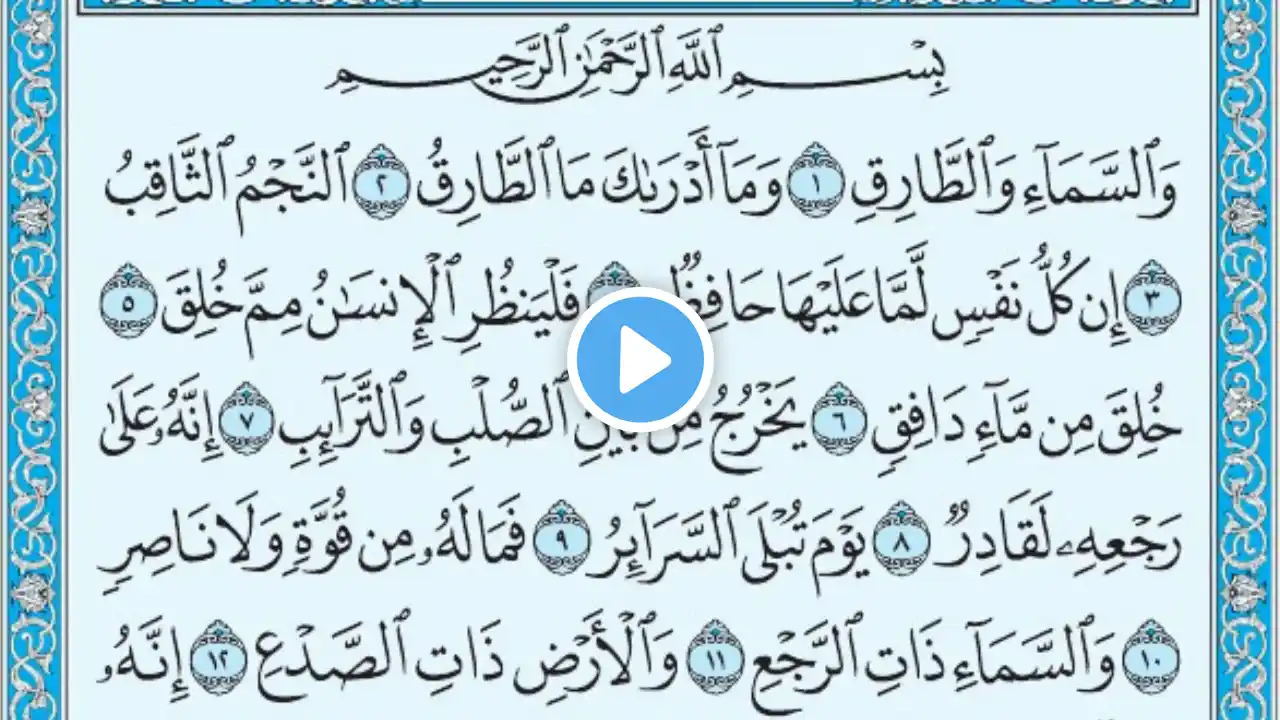 بِسْمِ ٱللَّهِ ٱلرَّحْمَٰنِ ٱلرَّحِيمِ
وَٱلسَّمَآءِ وَٱلطَّارِقِ ١ وَمَآ أَدْرَىٰكَ مَا ٱلطَّارِقُ ٢ ٱلنَّجْمُ ٱلثَّاقِبُ
٣ إِن كُلُّ نَفْسٍ لَّمَّا عَلَيْهَا حَافِظٌ فَلْيَنظُرِ ٱلْإِنسَٰنُ مِمَّ خُلِقَ ٥
خُلِقَ مِن مَّآءٍ دَافِقٍ ٦ يَخْرُجُ مِنۢ بَيْنِ ٱلصُّلْبِ وَٱلتَّرَآئِبِ ٧ إِنَّهُۥ عَلَىٰ
رَجْعِهِۦ لَقَادِرٌ ٨ يَوْمَ تُبْلَى ٱلسَّرَآئِرُ ٩ فَمَا لَهُۥ مِن قُوَّةٍ وَلَا نَاصِرٍ
١٠ وَٱلسَّمَآءِ ذَاتِ ٱلرَّجْعِ ١١ وَٱلْأَرْضِ ذَاتِ ٱلصَّدْعِ ١٢ إِنَّهُۥ